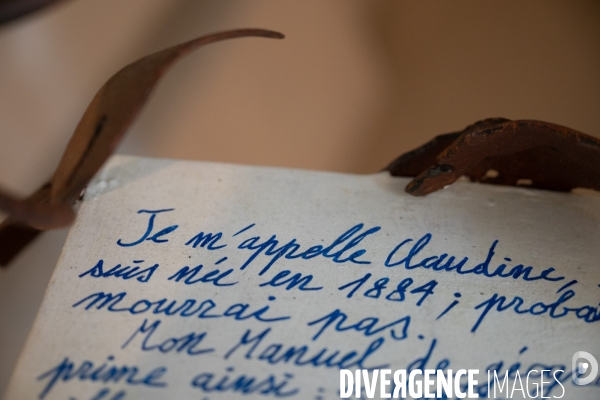 Je m'appelle Claudine,
suis née en 1884 ; proba
mourrai pas.
Mon Manuel de
prime ainsi :
DIVERGENCEIMAGES